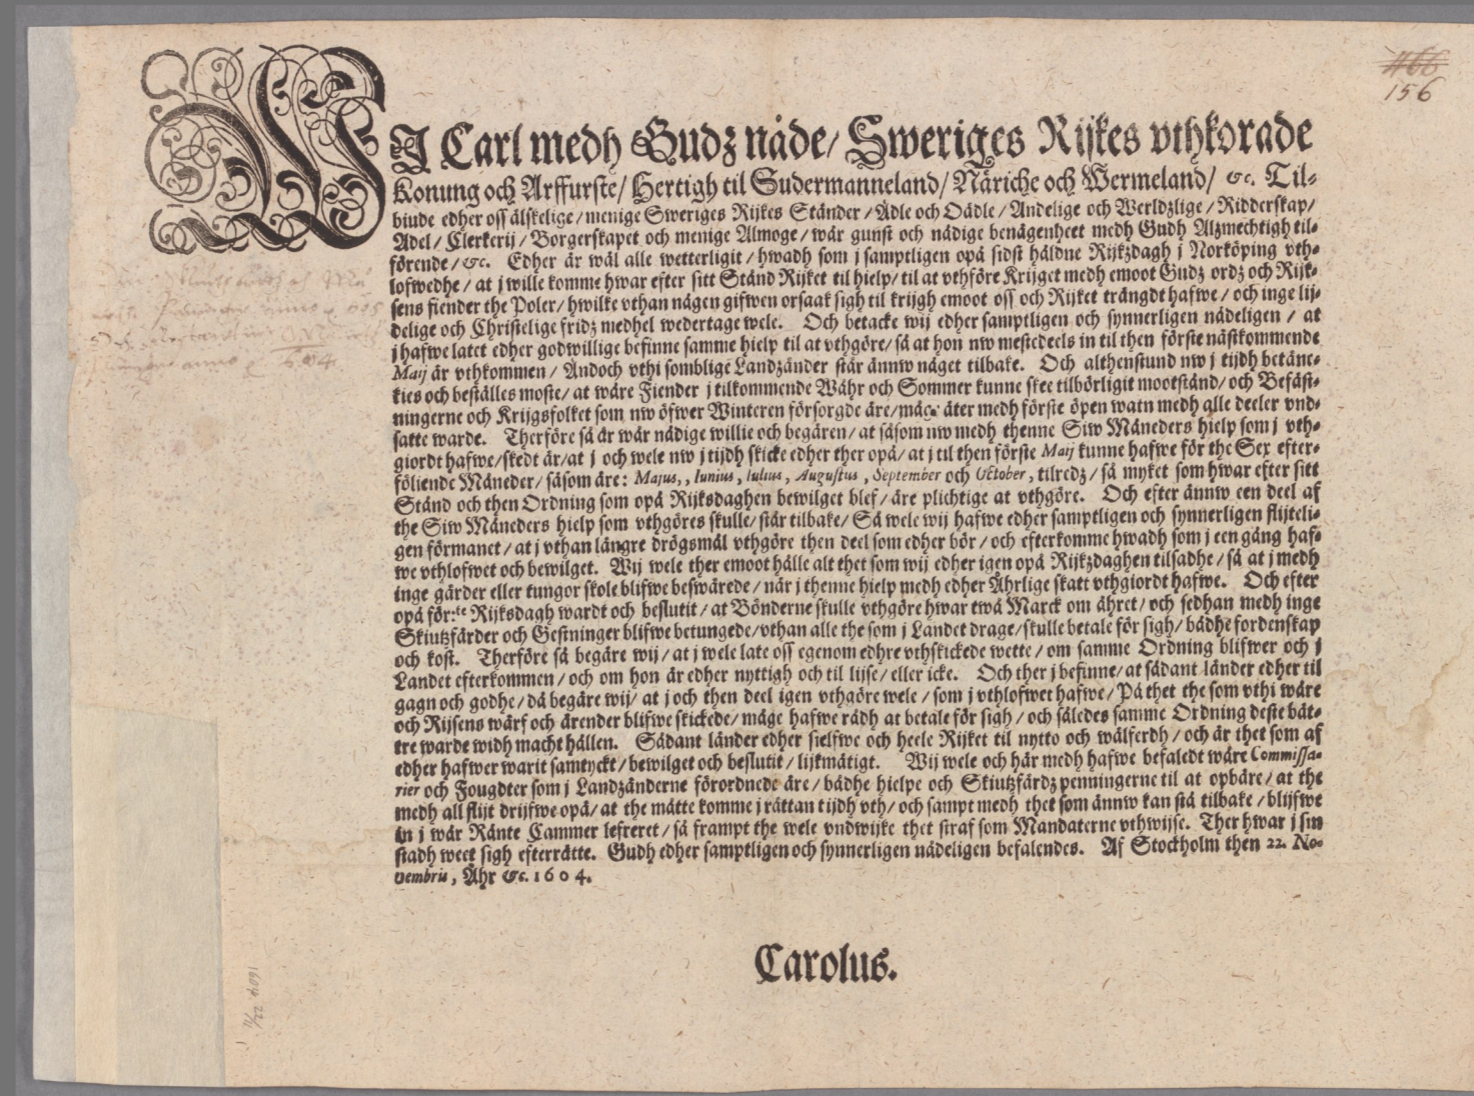 466
156
WJ Carl medh Gudz nåde/ Sweriges Rijkes vthkorade
Konung och Arffurste/ Hertigh til Sudermanneland/ Näriche och Wermeland/ &c. Til-
biude edher oss älskelige/ menige Sweriges Rijkes Ständer/ Ädle och Oädle/ Andelige och Werldzlige/ Ridderskap/
Adel/ Clerkerij/ Borgerskapet och menige Almoge/ wår gunst och nådige benägenheet medh Gudh Alzmechtigh til-
förende/ &c. Edher är wäl alle wetterligit/ hwadh som j samptligen opå sidst håldne Rijkzdagh j Norköping vth-
lofwedhe/ at j wille komme hwar efter sitt Stånd Rijket til hielp/ til at vthföre Krijget medh emoot Gudz ordz och Rijk-
sens fiender the Poler/ hwilke vthan någen gifwen orsaak sigh til krijgh emoot oss och Rijket trängdt hafwe/ och inge lij-
delige och Christelige fridz medhel wedertage wele. Och betacke wij edher samptligen och synnerligen nådeligen/ at
j hafwe latet edher godwillige befinne samme hielp til at vthgöre/ så at hon nw mestedeels in til then förste nästkommende
Maij är vthkommen/ Andoch vthi somblige Landzänder står ännw något tilbake. Och althenstund nw j tijdh betänc-
kies och beställes moste/ at wåre Fiender j tilkommende Wåhr och Sommer kunne skee tilbörligit mootstånd/ och Befäst-
ningerne och Krijgsfolket som nw öfwer Winteren försorgde äre/ måge åter medh förste öpen watn medh alle deeler vnd-
satte warde. Therföre så är wår nådige willie och begären/ at såsom nw medh thenne Siw Måneders hielp som j vth-
giordt hafwe/ skedt är/ at j och wele nw j tijdh skicke edher ther opå/ at j til then förste Maij kunne hafwe för the Sex efter-
följende Måneder/ såsom äre: Majus,, Iunius, Iulius, Augustus, September och October, tilredz/ så myket som hwar efter sitt
Stånd och then Ordning som opå Rijksdaghen bewilget blef/ äre plichtige at vthgöre. Och efter ännw een deel af
the Siw Måneders hielp som vthgöres skulle/ står tilbake/ Så wele wij hafwe edher samptligen och synnerligen flijteli-
gen förmanet/ at j vthan längre drögsmål vthgöre then deel som edher bör/ och efterkomme hwadh som j een gång haf-
we vthlofwet och bewilget. Wij wele ther emoot hålle alt thet som wij edher igen opå Rijkzdaghen tilsadhe/ så at j medh
inge gärder eller tungor skole blifwe beswärede/ när j thenne hielp medh edher Åhrlige skatt vthgiordt hafwe. Och efter
opå för:te Rijksdagh wardt och beslutit/ at Bönderne skulle vthgöre hwar twå Marck om åhret/ och sedhan medh inge
Skiutzfärder och Gestninger blifwe betungede/ vthan alle the som j Landet drage/ skulle betale för sigh/ bådhe fordenskap
och kost. Therföre så begäre wij/ at j wele late oss egenom edhre vthskickede wette/ om samme Ordning blifwer och j
Landet efterkommen/ och om hon är edher nyttigh och til lijse/ eller icke. Och ther j befinne/ at sådant länder edher til
gagn och godhe/ då begäre wij/ at j och then deel igen vthgöre wele/ som j vthlofwet hafwe/ På thet the som vthi wåre
och Rijsens wärf och ärender blifwe skickede/ måge hafwe rådh at betale för sigh/ och således samme Ordning deste bät-
tre warde widh macht hållen. Sådant länder edher sielfwe och heele Rijket til nytto och wälferdh/ och är thet som af
edher hafwer warit samtyckt/ bewilget och beslutit/ lijkmätigt. Wij wele och här medh hafwe befaledt wåre Commissa-
rier och Fougdter som j Landzänderne förordnede äre/ bådhe hielpe och Skiutzfärdz penningerne til at opbäre/ at the
medh all flijt drijfwe opå/ at the måtte komme j rättan tijdh vth/ och sampt medh thet som ännw kan stå tilbake/ blijfwe
in j wår Ränte Cammer lefreret/ så frampt the wele vndwijke thet straf som Mandaterne vthwijse. Ther hwar j sin
stadh weet sigh efterrätte. Gudh edher samptligen och synnerligen nådeligen befalendes. Af Stockholm then 22. No-
vembris, Åhr &c. 1604.
Carolus.
1604 22/11